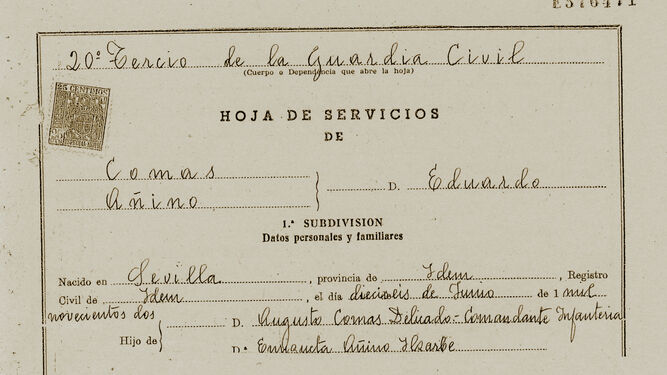 E376471
20º Tercio de la Guardia Civil
(Cuerpo o Dependencia que abre la hoja)
25 CENTIMOS
HOJA DE SERVICIOS
DE
Comas
Añino } D. Eduardo
1.ª SUBDIVISION
Datos personales y familiares
Nacido en Sevilla, provincia de Idem, Registro
Civil de Idem, el día dieciseis de Junio de 1 mil
novecientos dos
Hijo de { D. Augusto Comas Delicado - Comandante Infanteria
D.ª Añino